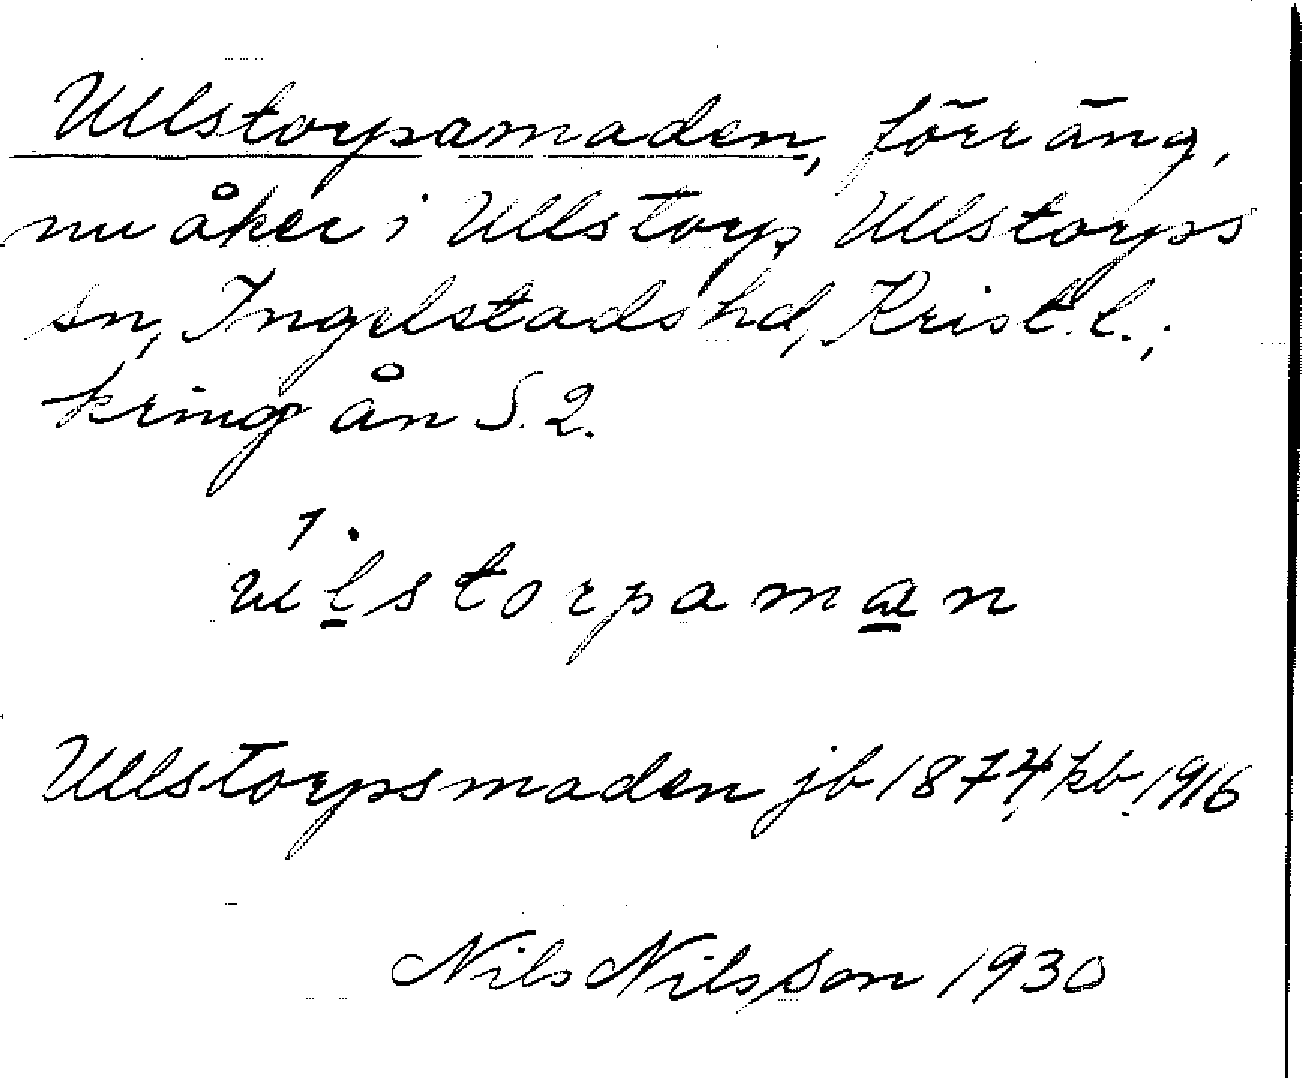 Ullstorpamaden, förr äng,
nu åker i Ullstorp, Ullstorps
sn, Ingelstads hd, Krist. l.;
kring ån S. 2.
ulstorpaman
Ullstorpsmaden jb 1874, kb. 1916
Nils Nilsson 1930